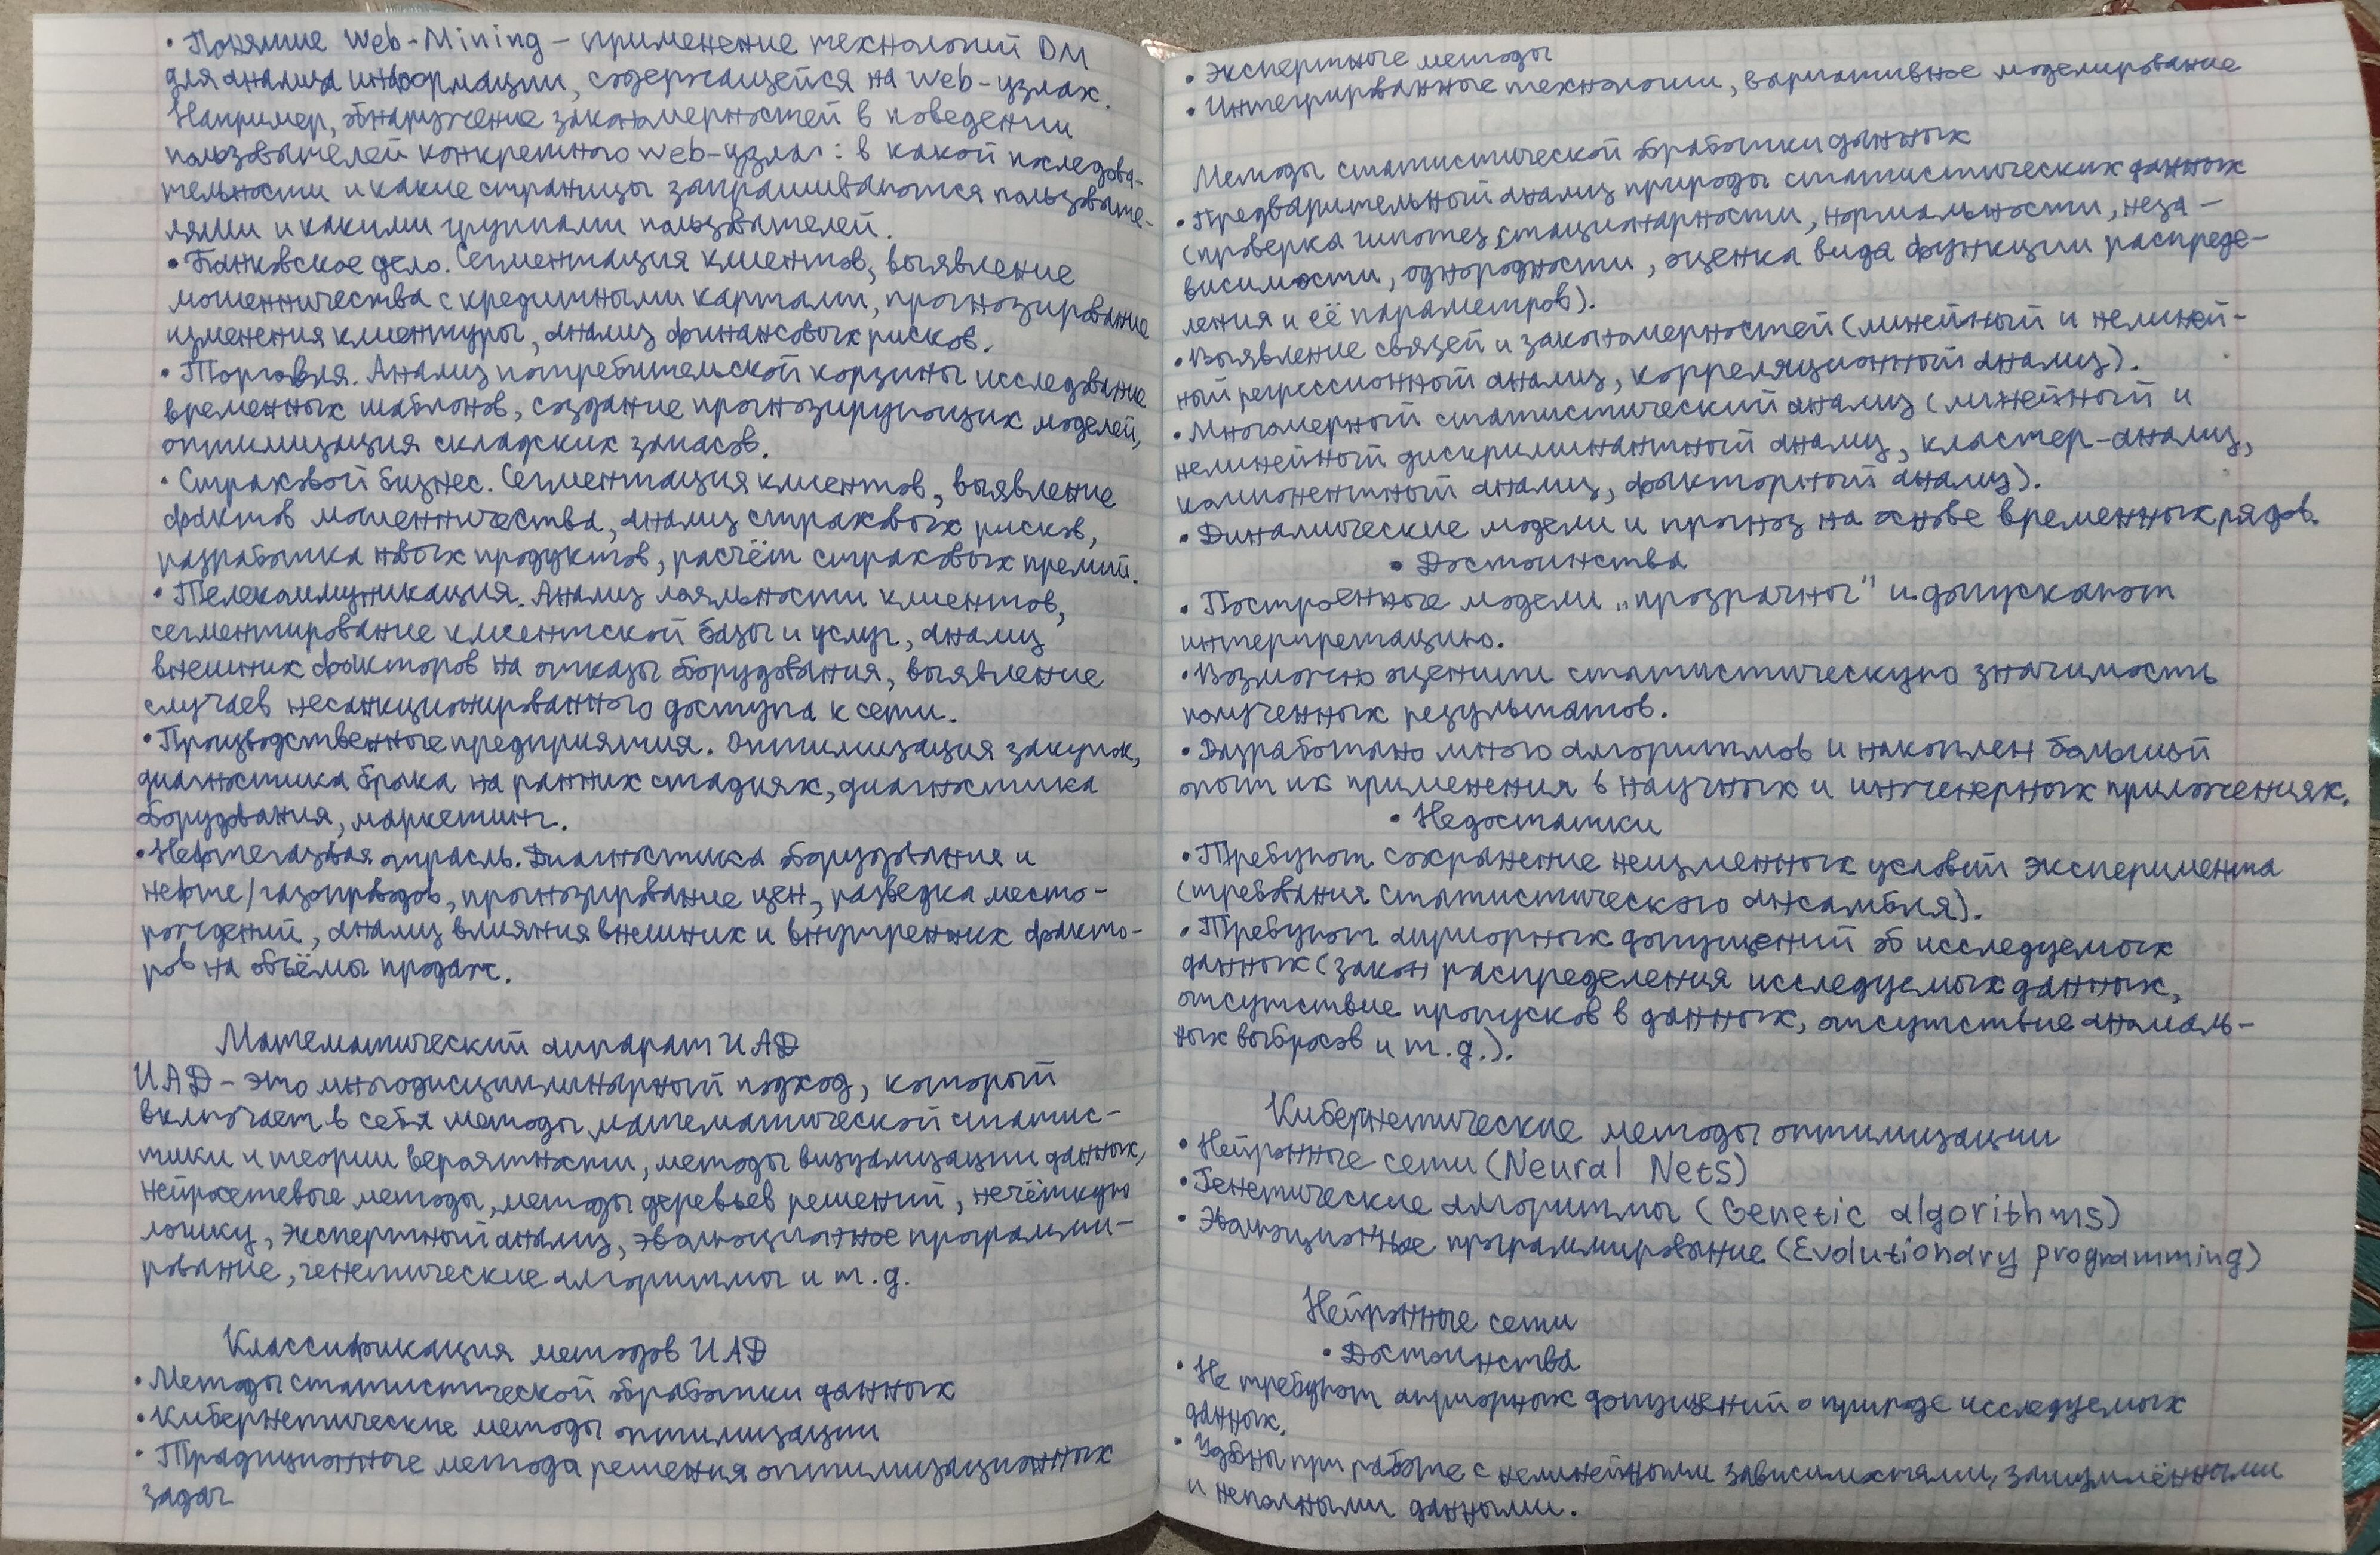 • Понятие Web-Mining – применение технологий DM
для анализа информации, содержащейся на Web-узлах.
Например, обнаружение закономерностей в поведении
пользователей конкретного Web-узла: в какой последова-
тельности и какие страницы запрашиваются пользовате-
лями и какими группами пользователей.
• Банковское дело. Сегментация клиентов, выявление
мошенничества с кредитными картами, прогнозирование
изменения клиентуры, анализ финансовых рисков.
• Торговля. Анализ потребительской корзины исследование
временных шаблонов, создание прогнозирующих моделей,
оптимизация складских запасов.
• Страховой бизнес. Сегментация клиентов, выявление
фактов мошенничества, анализ страховых рисков,
разработка новых продуктов, расчёт страховых премий.
• Телекоммуникация. Анализ лояльности клиентов,
сегментирование клиентской базы и услуг, анализ
внешних факторов на отказы оборудования, выявление
случаев несанкционированного доступа к сети.
• Производственные предприятия. Оптимизация закупок,
диагностика брака на ранних стадиях, диагностика
оборудования, маркетинг.
• Нефтегазовая отрасль. Диагностика оборудования и
нефте/газопроводов, прогнозирование цен, разведка место-
рождений, анализ влияния внешних и внутренних факто-
ров на объёмы продаж.
Математический аппарат ИАД
ИАД – это многодисциплинарный подход, который
включает в себя методы математической статис-
тики и теории вероятности, методы визуализации данных,
нейросетевые методы, методы деревьев решений, нечёткую
логику, экспертный анализ, эволюционное программи-
рование, генетические алгоритмы и т.д.
Классификация методов ИАД
• Методы статистической обработки данных
• Кибернетические методы оптимизации
• Традиционные метода решения оптимизационных
задач
• Экспертные методы
• Интегрированные технологии, вариативное моделирование
Методы статистической обработки данных
• Предварительный анализ природы статистических данных
(проверка гипотез стационарности, нормальности, неза-
висимости, однородности, оценка вида функции распреде-
ления и её параметров).
• Выявление связей и закономерностей (линейный и нелиней-
ный регрессионный анализ, корреляционный анализ).
• Многомерный статистический анализ (линейный и
нелинейный дискриминантный анализ, кластер-анализ,
компонентный анализ, факторный анализ).
• Динамические модели и прогноз на основе временных рядов.
• Достоинства
• Построенные модели „прозрачны" и допускают
интерпретацию.
• Возможно оценить статистическую значимость
полученных результатов.
• Разработано много алгоритмов и накоплен большой
опыт их применения в научных и инженерных приложениях.
• Недостатки
• Требуют сохранение неизменных условий эксперимента
(требования статистического ансамбля).
• Требуют априорных допущений об исследуемых
данных (закон распределения исследуемых данных,
отсутствие пропусков в данных, отсутствие аномаль-
ных выбросов и т.д.).
Кибернетические методы оптимизации
• Нейронные сети (Neural Nets)
• Генетические алгоритмы (Genetic algorithms)
• Эволюционное программирование (Evolutionary programming)
Нейронные сети
• Достоинства
• Не требуют априорных допущений о природе исследуемых
данных.
• Удобны при работе с нелинейными зависимостями, зашумлёнными
и неполными данными.